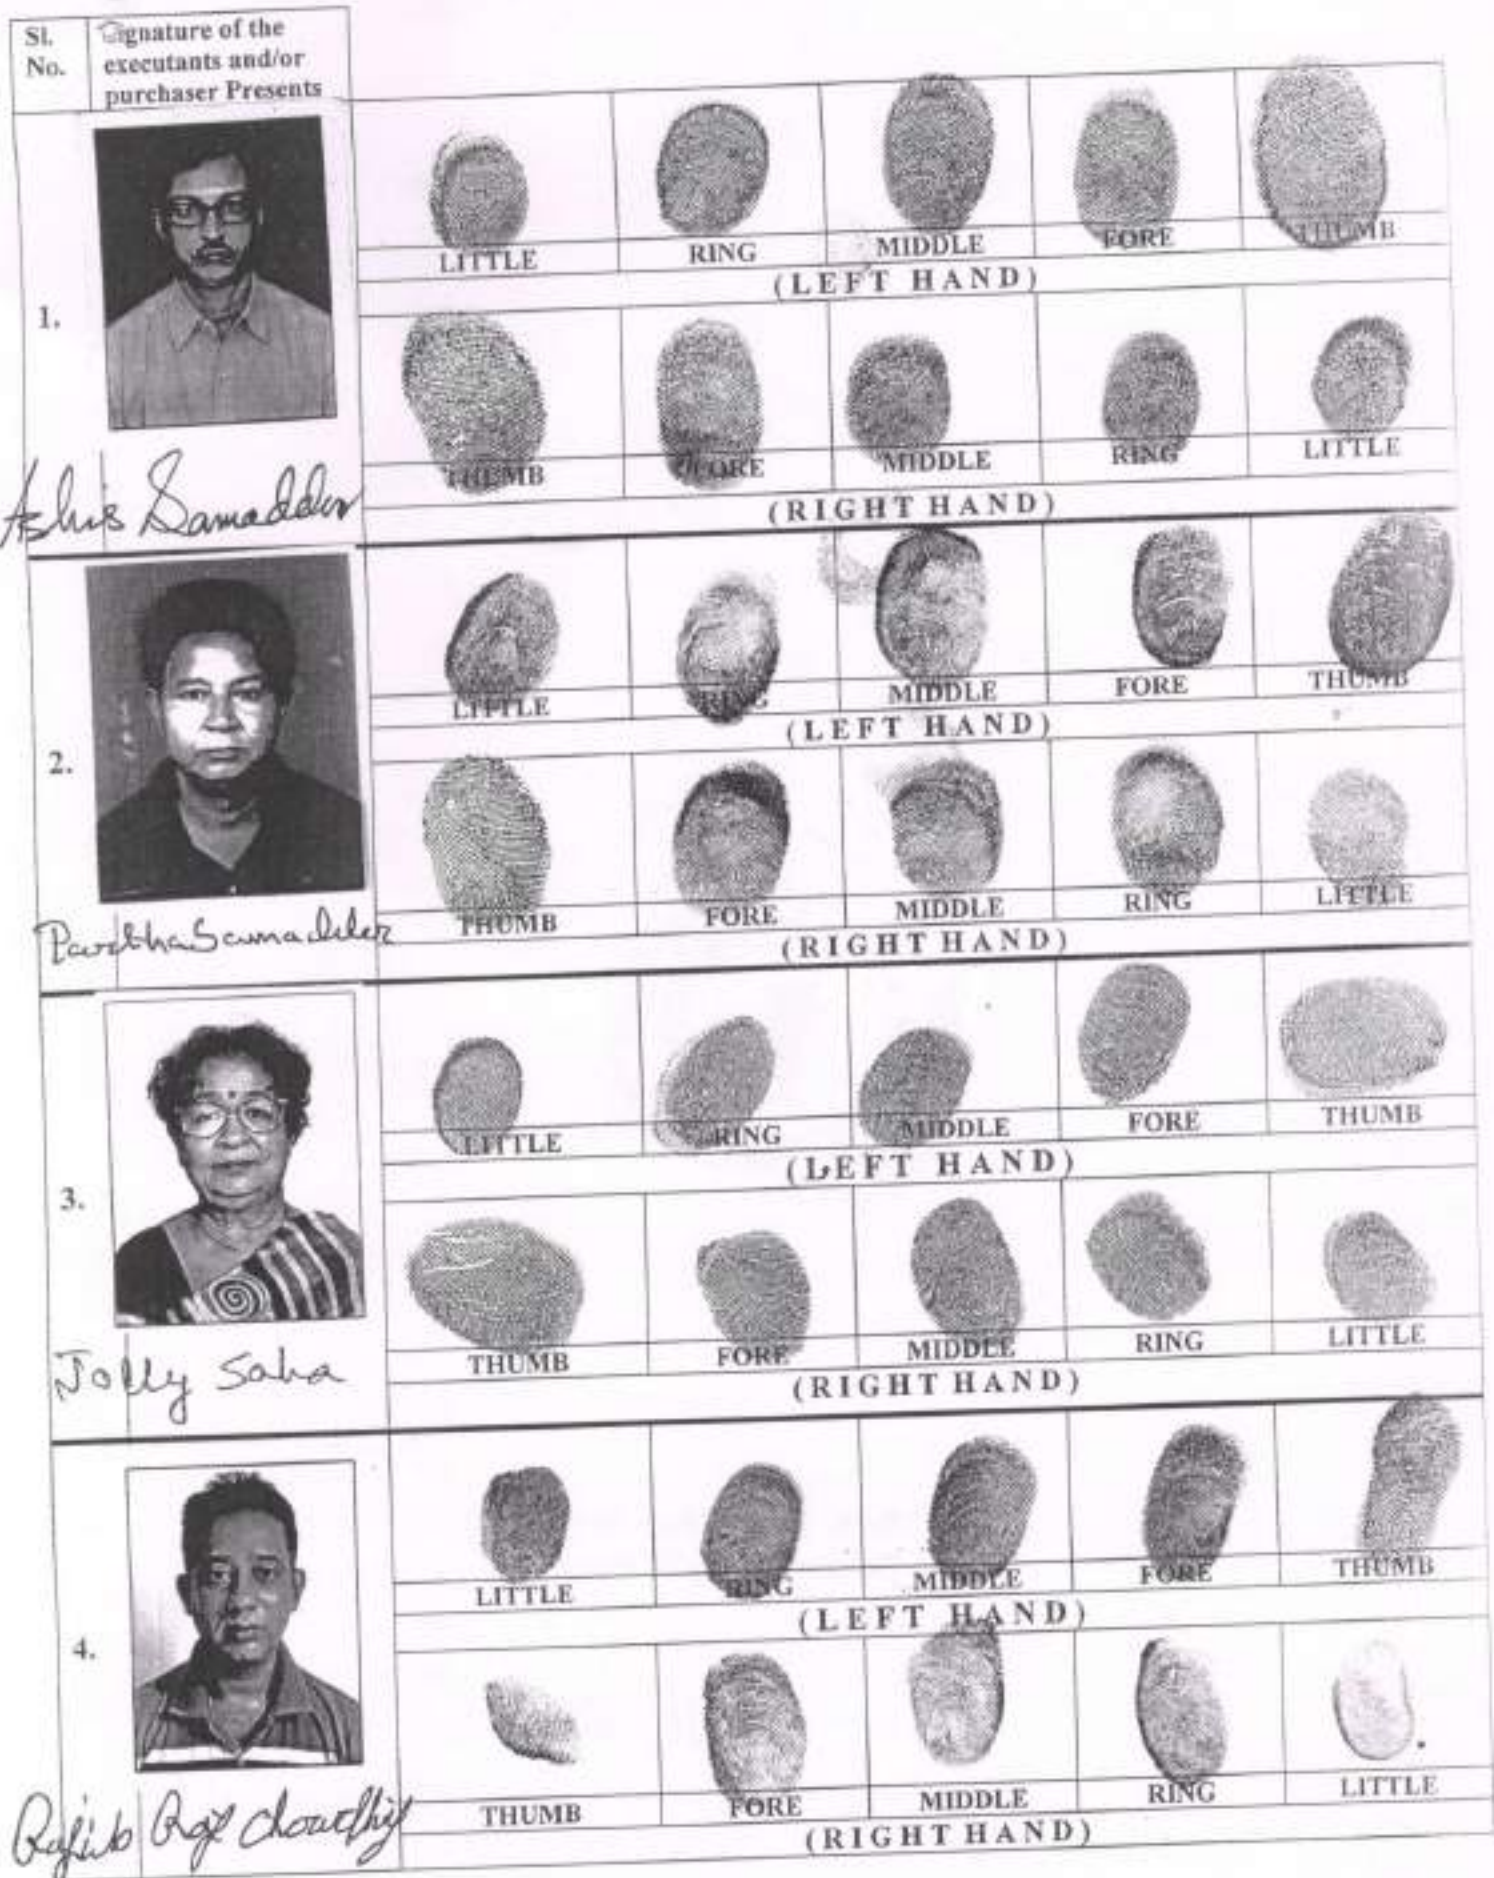 Sl. No.
Signature of the
executants and/or
purchaser Presents
1.
LITTLE RING MIDDLE FORE THUMB
(LEFT HAND)
THUMB FORE MIDDLE RING LITTLE
(RIGHT HAND)
Ashis Samadder
2.
LITTLE RING MIDDLE FORE THUMB
(LEFT HAND)
THUMB FORE MIDDLE RING LITTLE
(RIGHT HAND)
Samadder
3.
LITTLE RING MIDDLE FORE THUMB
(LEFT HAND)
THUMB FORE MIDDLE RING LITTLE
(RIGHT HAND)
Jolly Saha
4.
LITTLE RING MIDDLE FORE THUMB
(LEFT HAND)
THUMB FORE MIDDLE RING LITTLE
(RIGHT HAND)
Rajib Roy Chowdhury